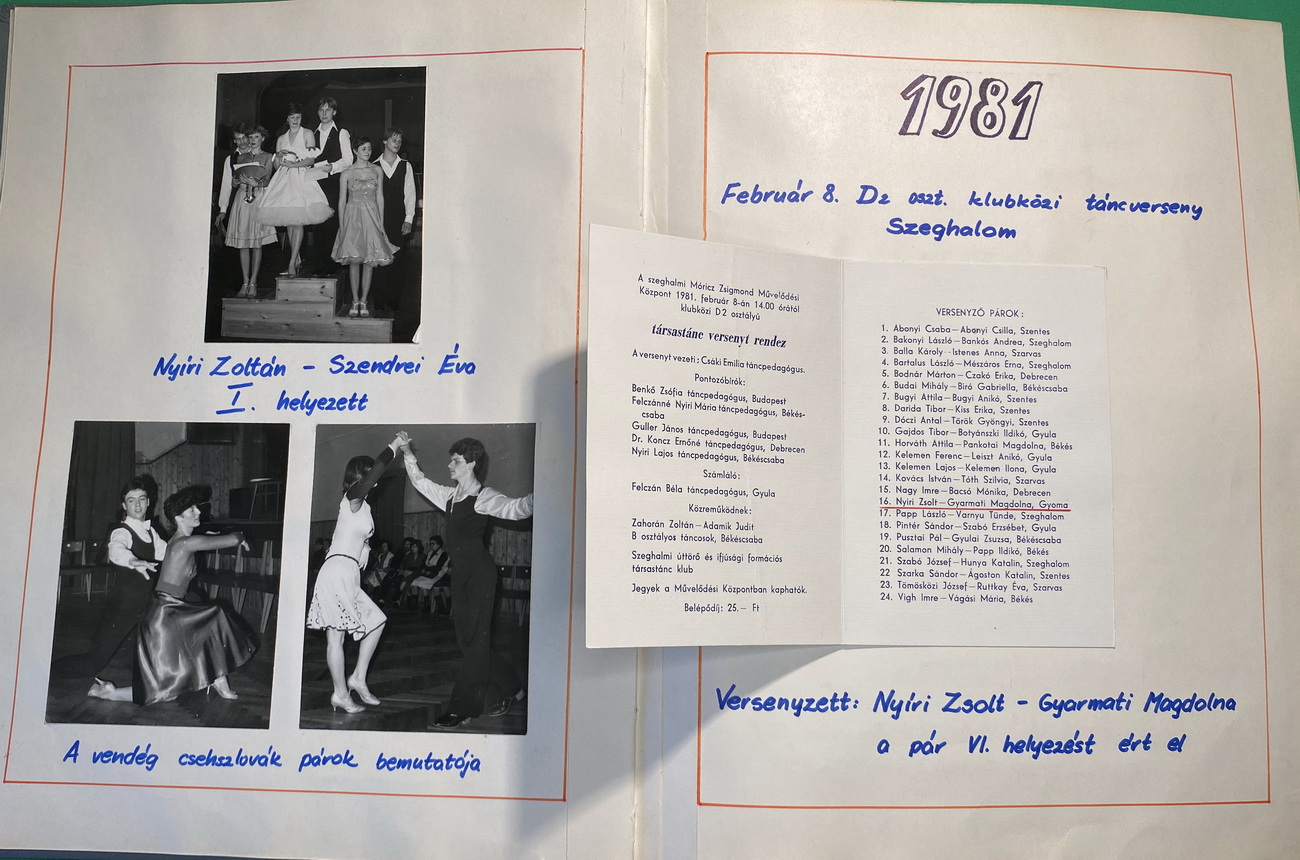 Nyíri Zoltán - Szendrei Éva
I. helyezett
A vendég csehszlovák párok bemutatója
1981
Február 8. D2 oszt. klubközi táncverseny
Szeghalom
A szeghalmi Móricz Zsigmond Művelődési
Központ 1981. február 8-án 14.00 órától
klubközi D 2 osztályú
társastánc versenyt rendez
A versenyt vezeti: Csáki Emilia táncpedagógus.
Pontozóbírók:
Benkő Zsófia táncpedagógus, Budapest
Felczánné Nyiri Mária táncpedagógus, Békés-
csaba
Guller János táncpedagógus, Budapest
Dr. Koncz Ernőné táncpedagógus, Debrecen
Nyiri Lajos táncpedagógus, Békéscsaba
Számláló:
Felczán Béla táncpedagógus, Gyula
Közreműködnek:
Zahorán Zoltán—Adamik Judit
B osztályos táncosok, Békéscsaba
Szeghalmi úttörő és ifjúsági formációs
társastánc klub
Jegyek a Művelődési Központban kaphatók.
Belépődíj: 25.— Ft
VERSENYZŐ PÁROK:
1. Abonyi Csaba—Abonyi Csilla, Szentes
2. Bakonyi László—Bankós Andrea, Szeghalom
3. Balla Károly—Istenes Anna, Szarvas
4. Bartalus László—Mészáros Erna, Szeghalom
5. Bodnár Márton—Czakó Erika, Debrecen
6. Budai Mihály—Biró Gabriella, Békéscsaba
7. Bugyi Attila—Bugyi Anikó, Szentes
8. Darida Tibor—Kiss Erika, Szentes
9. Dóczi Antal—Török Gyöngyi, Szentes
10. Gajdos Tibor—Botyánszki Ildikó, Gyula
11. Horváth Attila—Pankotai Magdolna, Békés
12. Kelemen Ferenc—Leiszt Anikó, Gyula
13. Kelemen Lajos—Kelemen Ilona, Gyula
14. Kovács István—Tóth Szilvia, Szarvas
15. Nagy Imre—Bacsó Mónika, Debrecen
16. Nyiri Zsolt—Gyarmati Magdolna, Gyoma
17. Papp László—Varnyu Tünde, Szeghalom
18. Pintér Sándor—Szabó Erzsébet, Gyula
19. Pusztai Pál—Gyulai Zsuzsa, Békéscsaba
20. Salamon Mihály—Papp Ildikó, Békés
21. Szabó József—Hunya Katalin, Szeghalom
22 Szarka Sándor—Ágoston Katalin, Szentes
23. Tömösközi József—Ruttkay Éva, Szarvas
24. Vigh Imre—Vágási Mária, Békés
Versenyzett: Nyíri Zsolt - Gyarmati Magdolna
a pár VI. helyezést ért el